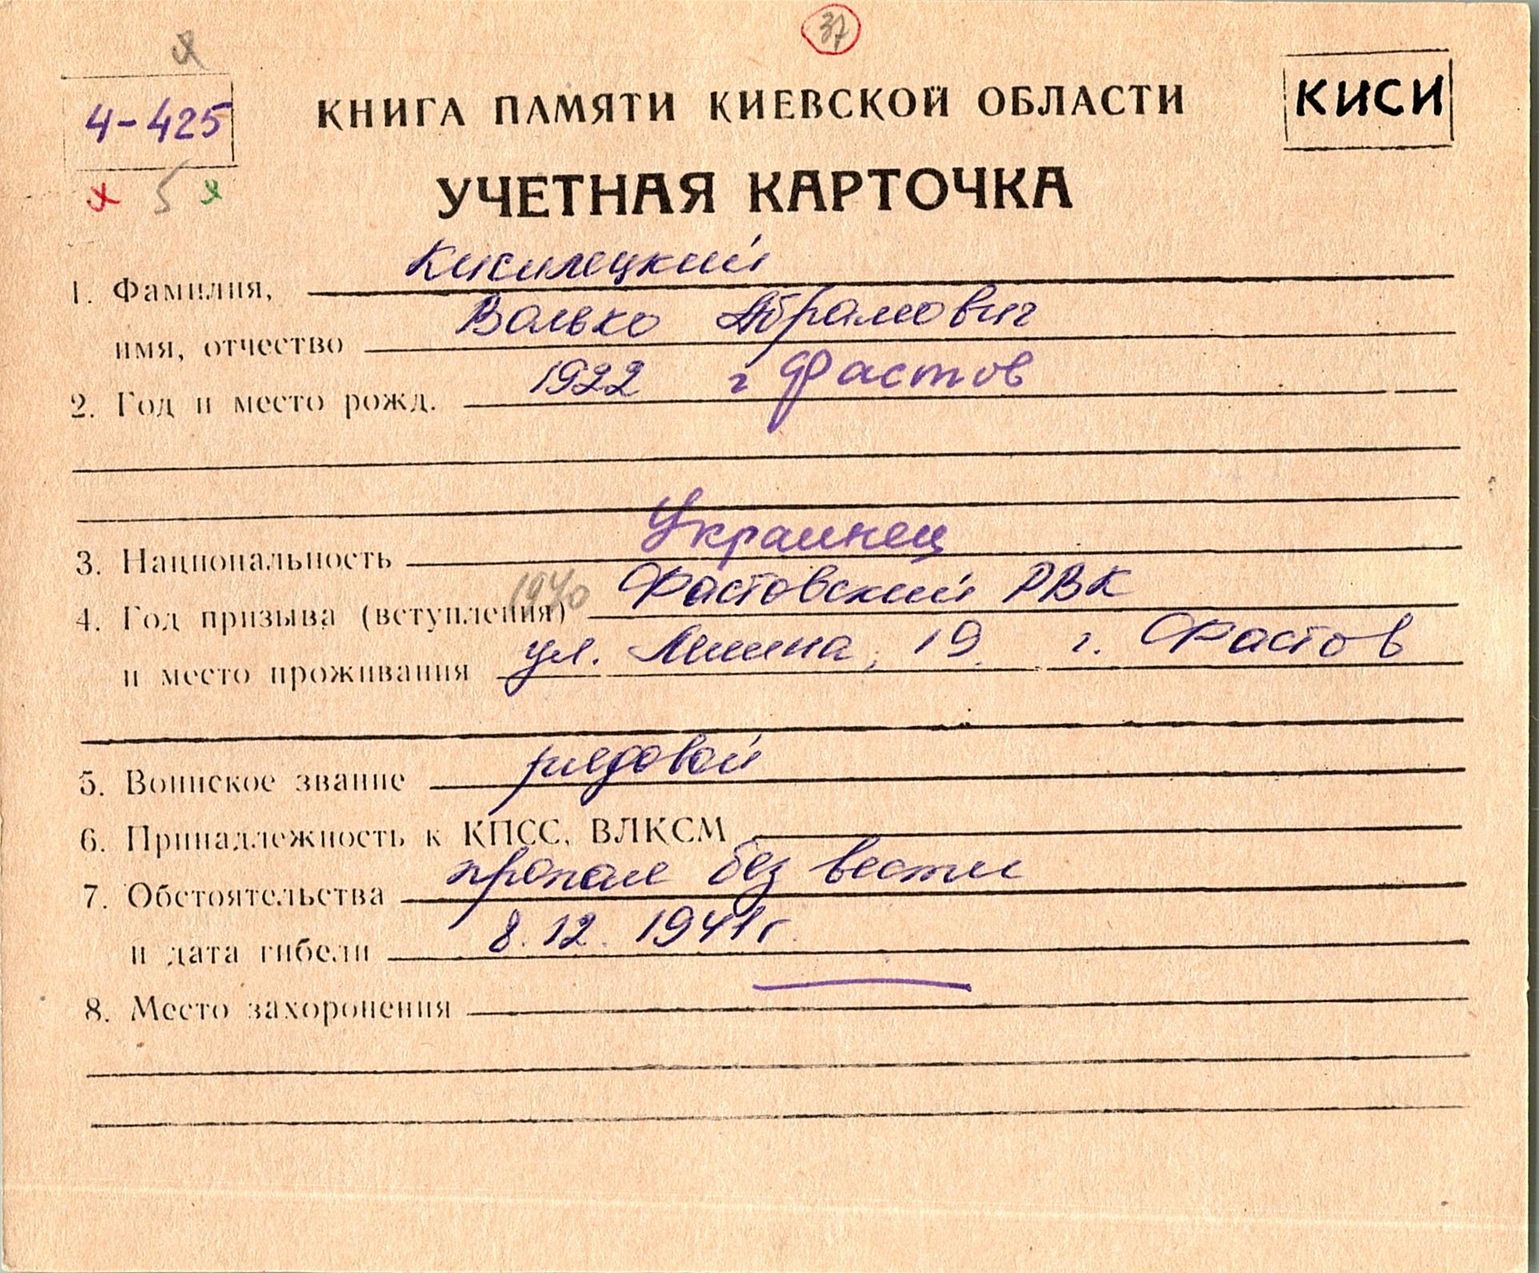 37
4-425
КНИГА ПАМЯТИ КИЕВСКОЙ ОБЛАСТИ
КИСИ
5
УЧЕТНАЯ КАРТОЧКА
1. Фамилия, Кисилецкий
имя, отчество Валько Абрамович
2. Год и место рожд. 1922 г Фастов
3. Национальность Украинец
4. Год призыва (вступления) 1940 Фастовский РВК
и место проживания ул. Ленина, 19. г. Фастов
5. Воинское звание рядовой
6. Принадлежность к КПСС, ВЛКСМ
7. Обстоятельства пропал без вести
и дата гибели 8.12.1941г.
8. Место захоронения